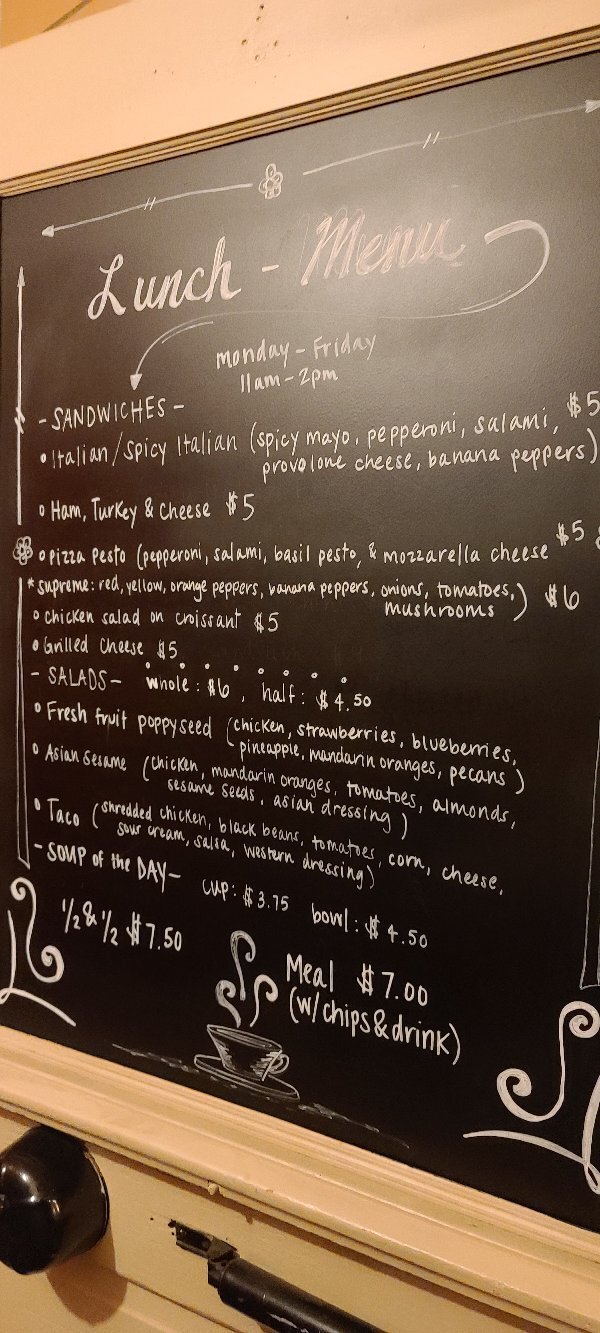 Lunch - Menu
Monday - Friday
11am - 2pm
- SANDWICHES -
• Italian/Spicy Italian (spicy mayo, pepperoni, salami, $5
provolone cheese, banana peppers)
• Ham, Turkey & Cheese $5
• Pizza Pesto (pepperoni, salami, basil pesto, & mozzarella cheese $5
* supreme: red, yellow, orange peppers, banana peppers, onions, tomatoes,
mushrooms) $6
• Chicken salad on croissant $5
• Grilled Cheese $5
- SALADS - Whole: $6, half: $4.50
• Fresh fruit poppyseed (chicken, strawberries, blueberries,
pineapple, mandarin oranges, pecans)
• Asian Sesame (chicken, mandarin oranges, tomatoes, almonds,
sesame seeds, asian dressing)
• Taco (shredded chicken, black beans, tomatoes, corn, cheese,
sour cream, salsa, western dressing)
- SOUP of the DAY - cup: $3.75 bowl: $4.50
1/2 & 1/2 $7.50
Meal $7.00
(w/chips & drink)